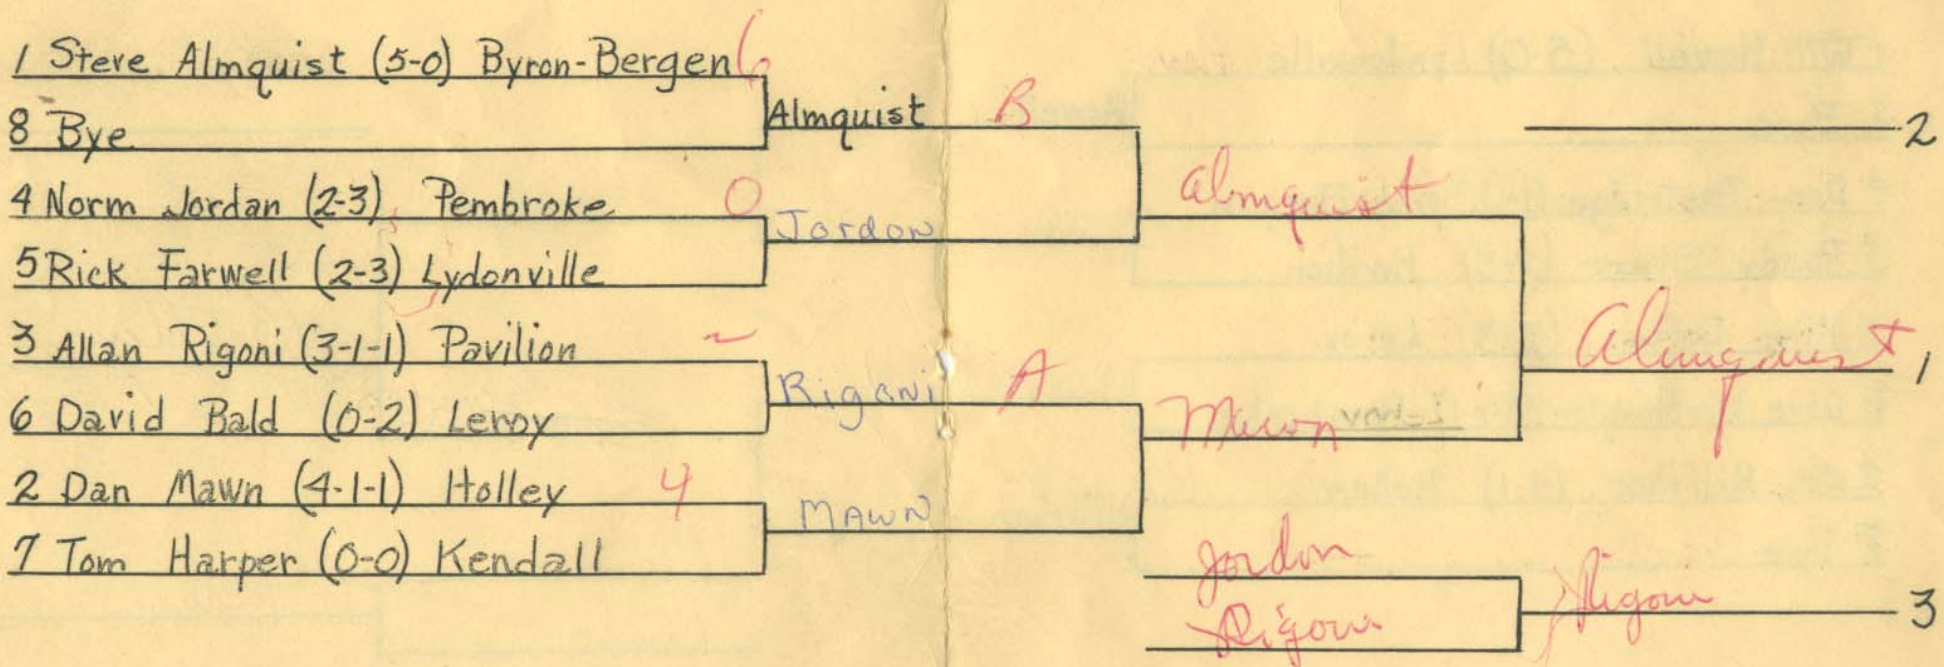 1 Steve Almquist (5-0) Byron-Bergen 6
8 Bye
4 Norm Jordan (2-3) Pembroke 0
5 Rick Farwell (2-3) Lydonville
3 Allan Rigoni (3-1-1) Pavilion
6 David Bald (0-2) Leroy
2 Dan Mawn (4-1-1) Holley 4
7 Tom Harper (0-0) Kendall
Almquist B
Jordon
Rigoni A
MAWN
Almquist
Mawn
Jordon
Rigoni
2
Almquist 1
Rigoni 3